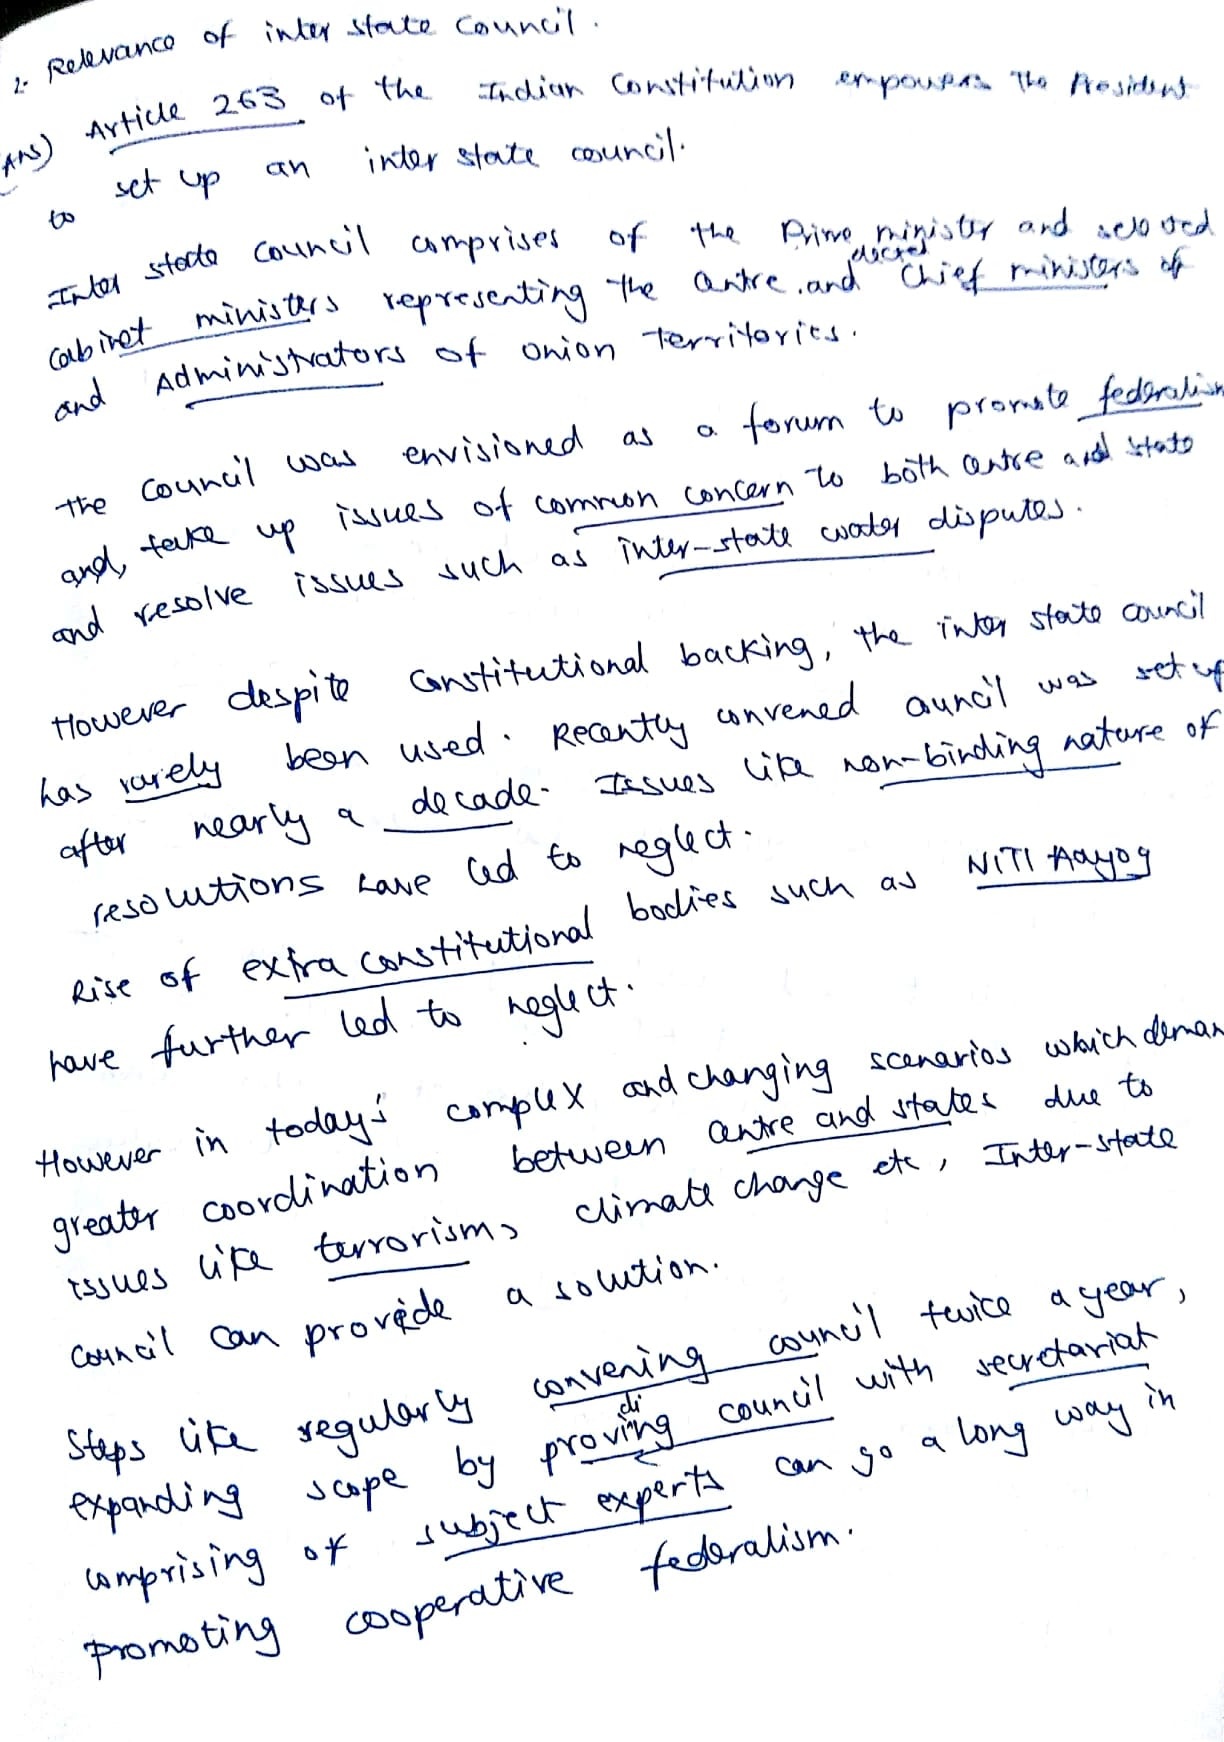 2. Relevance of inter state Council.
Ans) Article 263 of the Indian Constitution empowers the President
to set up an inter state council.
Inter state council comprises of the Prime minister and selected
cabinet ministers representing the centre, and Chief ministers of
and Administrators of Union Territories.
The council was envisioned as a forum to promote federalism
and, take up issues of common concern to both centre and state
and resolve issues such as inter-state water disputes.
However despite constitutional backing, the inter state council
has rarely been used. Recently convened council was set up
after nearly a decade. Issues like non-binding nature of
resolutions have led to neglect.
Rise of extra constitutional bodies such as NITI Aayog
have further led to neglect.
However in today's complex and changing scenarios which deman
greater coordination between centre and states due to
issues like terrorism, climate change etc, Inter-state
council can provide a solution.
Steps like regularly convening council twice a year,
expanding scope by proviing council with secretariat
di
comprising of subject experts can go a long way in
promoting cooperative federalism.